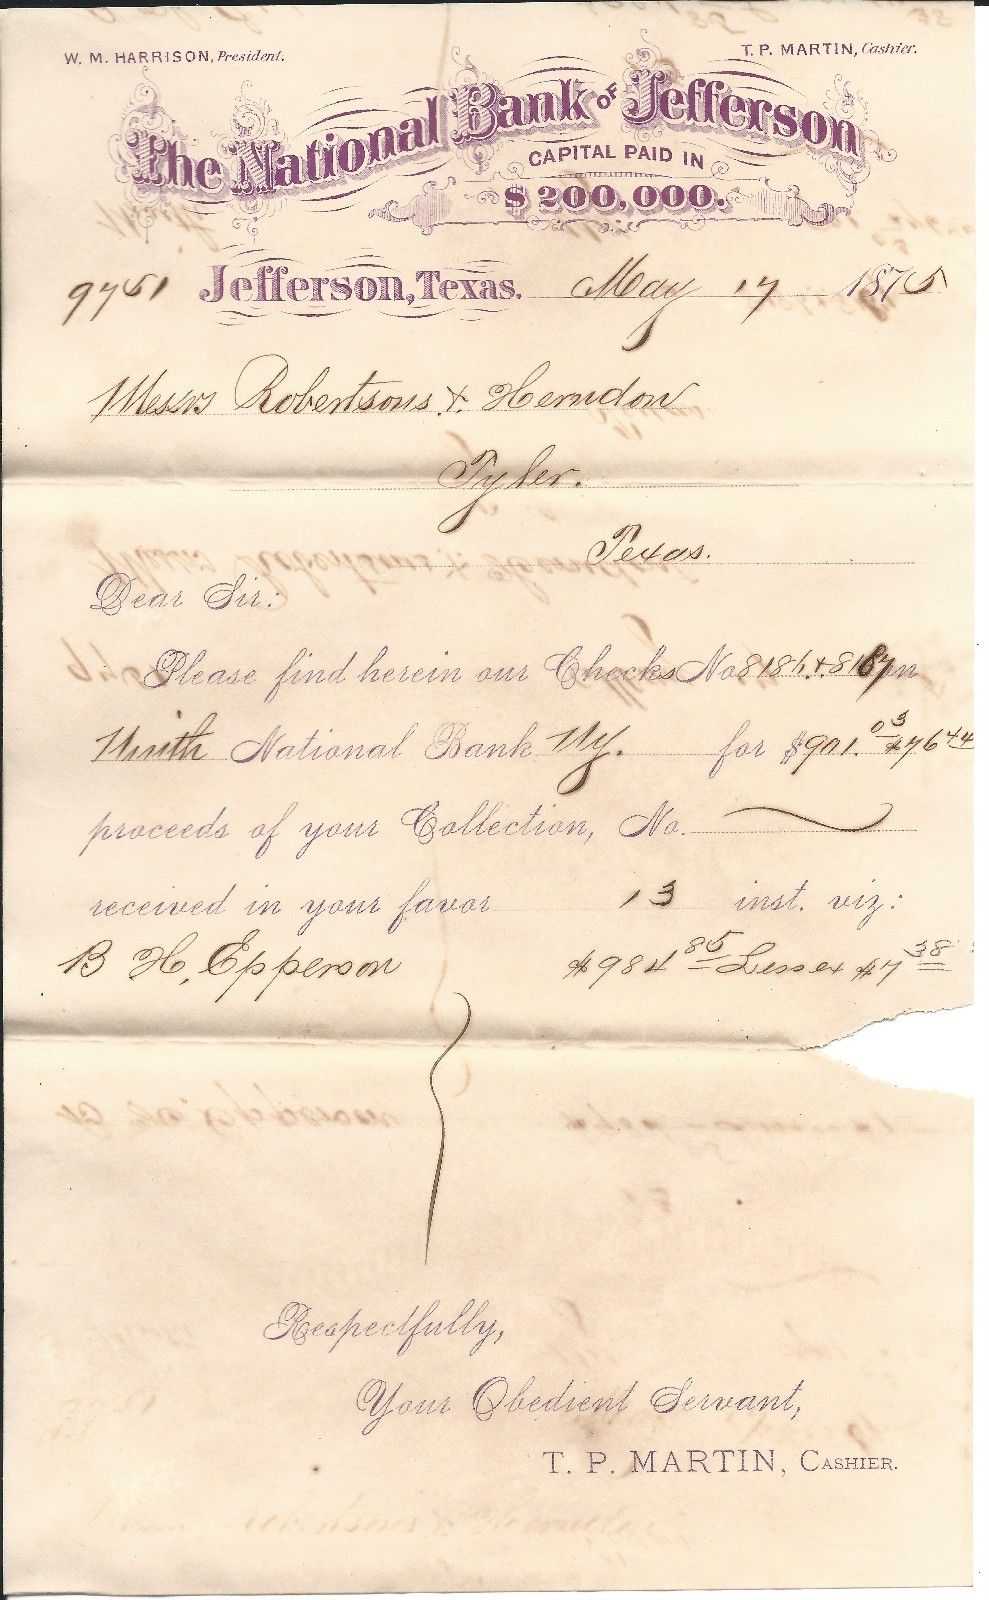 W. M. HARRISON, President. T. P. MARTIN, Cashier.
The National Bank OF Jefferson
CAPITAL PAID IN
$200,000.
Jefferson, Texas. May 17 1875
Messrs Robertsons & Herndon
Tyler.
Texas.
Dear Sir:
Please find herein our Checks No 8186 & 8187 on
Ninth National Bank NY. for $901.03 $76 44
proceeds of your Collection, No.
received in your favor 13 inst. viz:
B H, Epperson $984 85 Less ex $7 38
Respectfully,
Your Obedient Servant,
T. P. MARTIN, CASHIER.